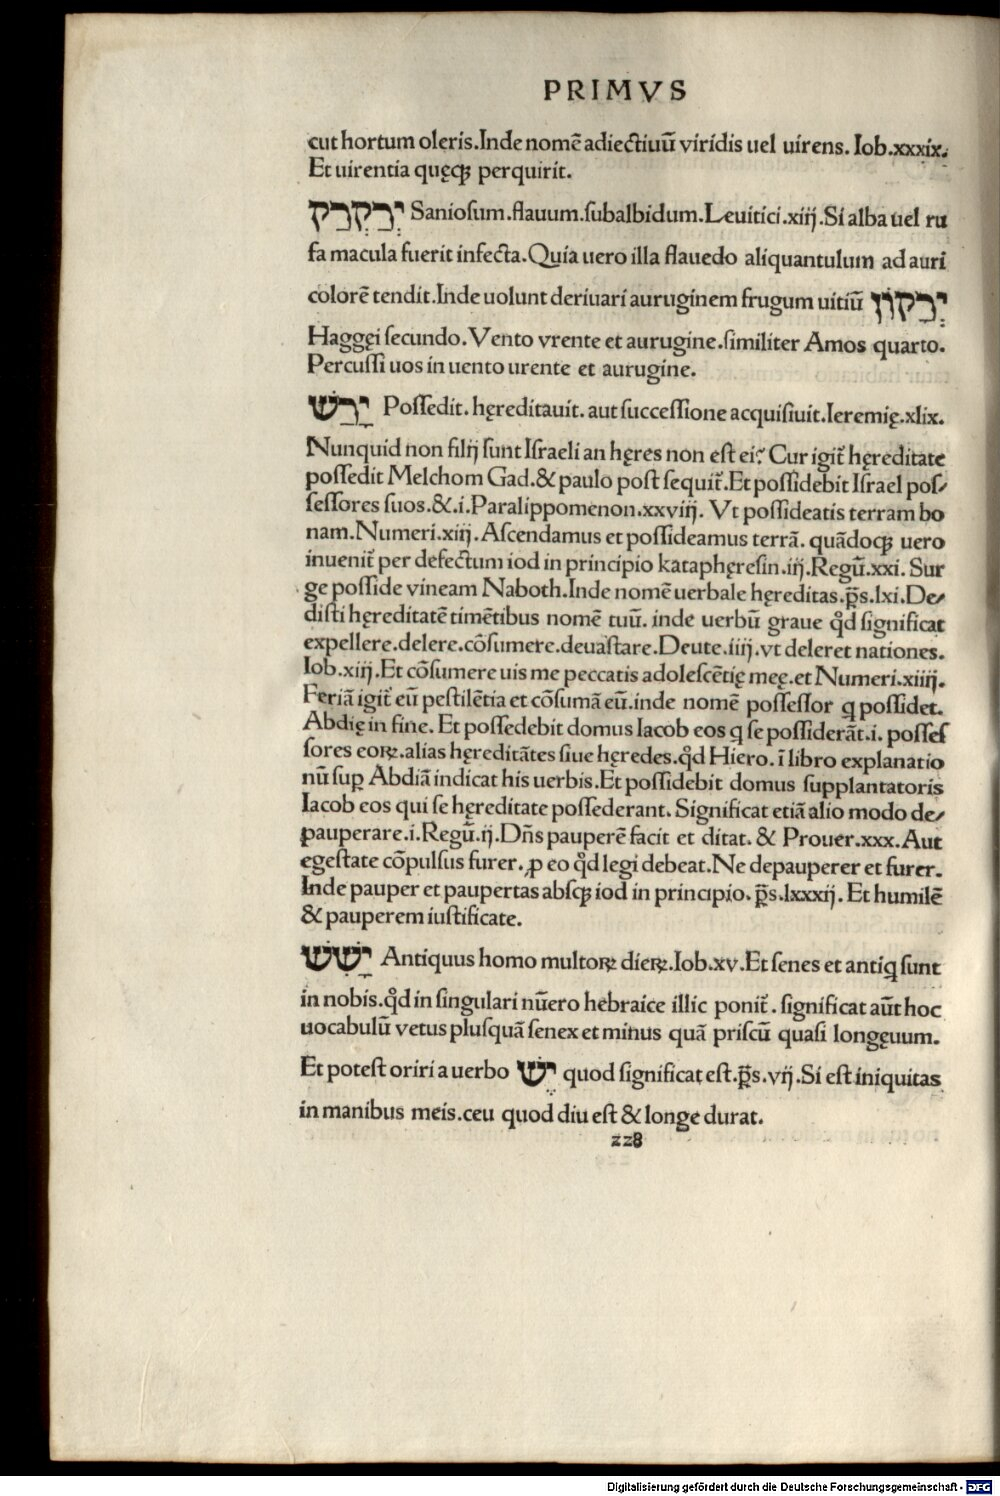 PRIMVS
cut hortum oleris.Inde nomē adiectiuū viridis uel uirens. Iob.xxxix.
Et uirentia quęqꝫ perquirit.
יְרַקְרַק Saniosum.flauum.subalbidum.Leuitici.xiij.Si alba uel ru
fa macula fuerit infecta.Quia uero illa flauedo aliquantulum ad auri
colorē tendit.Inde uolunt deriuari auruginem frugum uitiū יֵרָקוֹן
Haggęi secundo.Vento vrente et aurugine.similiter Amos quarto.
Percussi uos in uento urente et aurugine.
יָרַשׁ Possedit.hęreditauit.aut successione acquisiuit.Ieremię.xlix.
Nunquid non filij sunt Israeli an hęres non est ei? Cur igit̄ hęreditate
possedit Melchom Gad.& paulo post sequit̄.Et possidebit Israel pos/
sessores suos.&.i.Paralippomenon.xxviij. Vt possideatis terram bo
nam.Numeri.xiij.Ascendamus et possideamus terrā. quādoqꝫ uero
inuenit̄ per defectum iod in principio kataphęresin.iij.Regū.xxi. Sur
ge posside vineam Naboth.Inde nomē uerbale hęreditas.p̄s.lxi.De/
disti hęreditatē timētibus nomē tuū. inde uerbū graue qd̄ significat
expellere.delere.cōsumere.deuastare.Deute.iiij.vt deleret nationes.
Iob.xiij.Et cōsumere uis me peccatis adolescētię meę.et Numeri.xiiij.
Feriā igit̄ eū pestilētia et cōsumā eū.inde nomē possessor q possidet.
Abdię in fine. Et possedebit domus Iacob eos q se possiderāt.i. posses
sores eoꝝ.alias hęreditātes siue hęredes.qd̄ Hiero. ī libro explanatio
nū suꝑ Abdiā indicat his uerbis.Et possidebit domus supplantatoris
Iacob eos qui se hęreditate possederant. Significat etiā alio modo de/
pauperare.i.Regū.ij.Dn̄s pauperē facit et ditat. & Prouer.xxx. Aut
egestate cōpulsus furer.ꝓ eo qd̄ legi debeat.Ne depauperer et furer.
Inde pauper et paupertas absqꝫ iod in principio. p̄s.lxxxij. Et humilē
& pauperem iustificate.
יָשִׁשׁ Antiquus homo multoꝝ dieꝝ.Iob.xv.Et senes et antiq sunt
in nobis.qd̄ in singulari nūero hebraice illic ponit̄. significat aūt hoc
uocabulū vetus plusquā senex et minus quā priscū quasi longęuum.
Et potest oriri a uerbo יֵשׁ quod significat est.p̄s.vij.Si est iniquitas
in manibus meis.ceu quod diu est & longe durat.
228
Digitalisierung gefördert durch die Deutsche Forschungsgemeinschaft - DFG